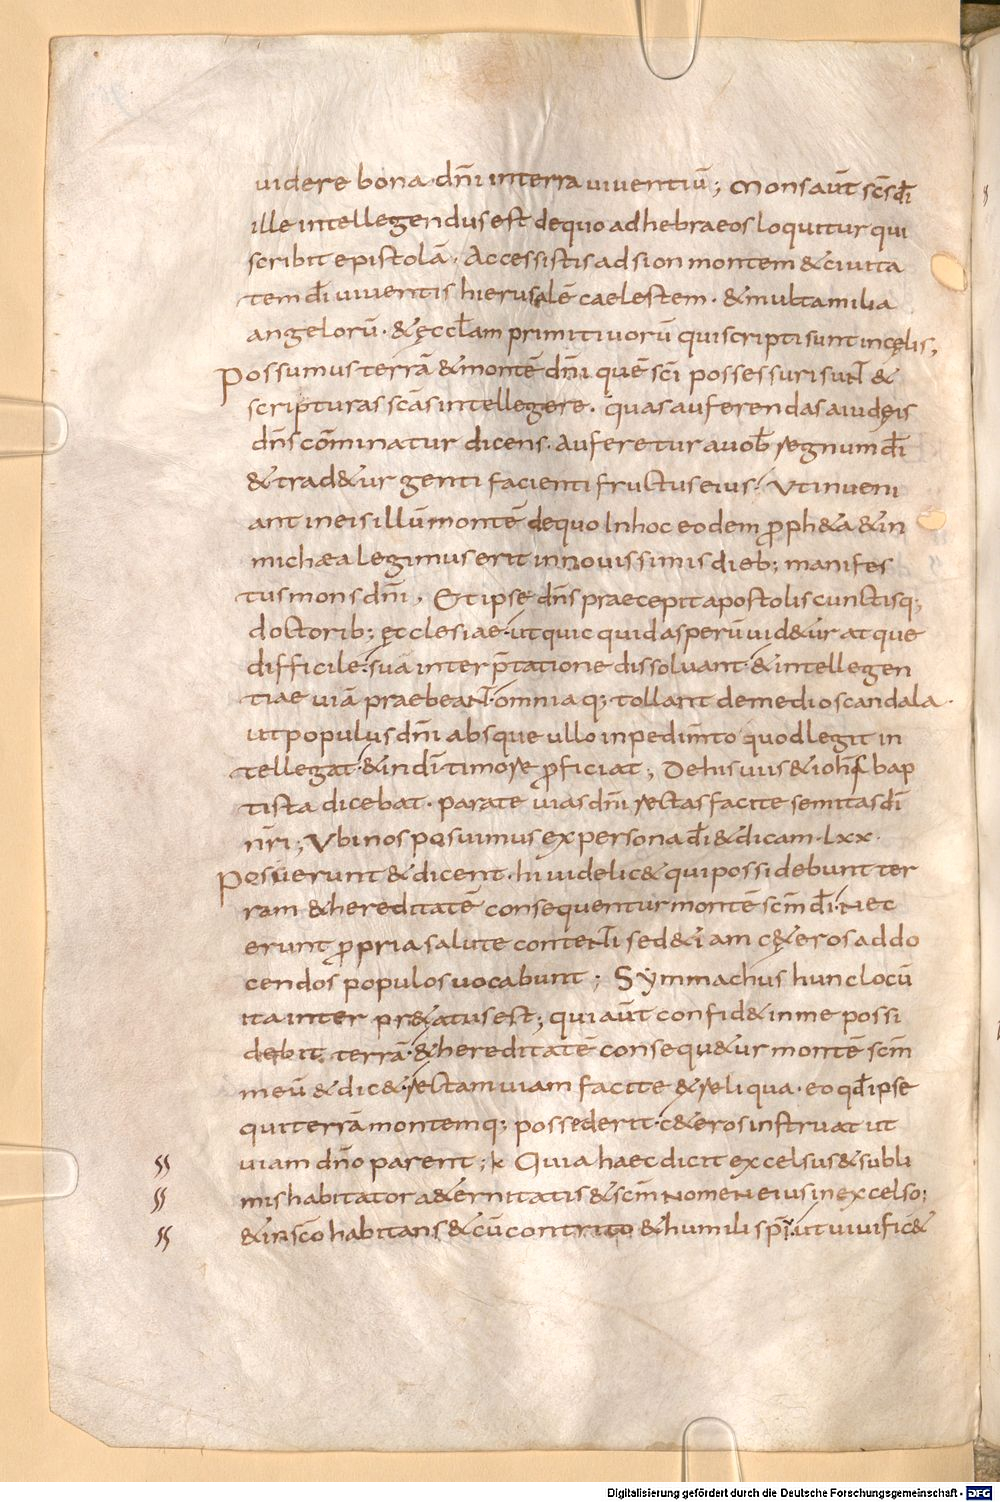 uidere bona dn̄i interra uiuentiū; Monsaūt sc̄sdī
ille intellegendusest dequo adhebraeos loquitur qui
scribit epistolā. Accessistis adsion montem & ciuita
tem dī uiuentis hierusalē caelestem. & multamilia
angelorū. & ęccłam primitiuorū quiscripti sunt incęlis;
Possumus terrā & montē dn̄i quē sc̄i possessuri sunt &
scripturas sc̄as intellegere. quas auferendas aiudęis
dn̄s cōminatur dicens. Auferetur auob̄ regnum dī
& trad&ur genti facienti fructus eius. Vtinueni
ant ineis illū montē dequo Inhoc eodem ꝓph&a & in
michæa legimus erit innouissimis dieb; manifes
tus mons dn̄i. Et ipse dn̄s praecepit apostolis cunctisq;
doctorib; ęcclesiae. ut quic quid asperū uid&ur at que
difficile. suā inter p̄tatione dissoluant. & intellegen
tiae uiā praebeant. omnia q; tollant demedio scandala.
ut populus dn̄i absque ullo inpedim̄to quod legit in
tellegat. & in dī timore ꝓficiat; Dehis uiis & ioh̄s bap
tista dicebat. parate uias dn̄i rectas facite semitas dī
nr̄i; Vbi nos posuimus ex persona dī & dicam. lxx.
Posuerunt & dicent. hi uidelic& qui possidebunt ter
ram & hereditatē consequentur montē sc̄m dī. Nec
erunt ꝓpria salute contenti sed & iam c&eros ad do
cendos populos uocabunt; Symmachus hunc locū
ita inter pr&atus est; qui aūt confid& in me possi
debit terrā. & hereditatē consequ&ur montē sc̄m
meū & dic&. rectam uiam facite & reliqua. eo qđ ipse
qui terrā montemq; possederit. c&eros instruat ut
uiam dn̄o parent; k Quia haec dicit excelsus & subli
mis habitator a&ernitatis & sc̄m nomen eius in excelso;
& in sc̄o habitans & cū contrito & humili sp̄u. ut uiuific&
Digitalisierung gefördert durch die Deutsche Forschungsgemeinschaft - DFG